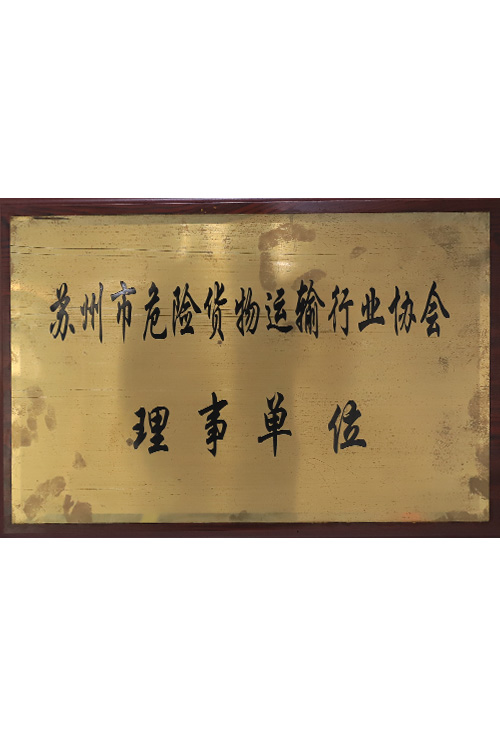 苏州市危险货物运输行业协会
理事单位